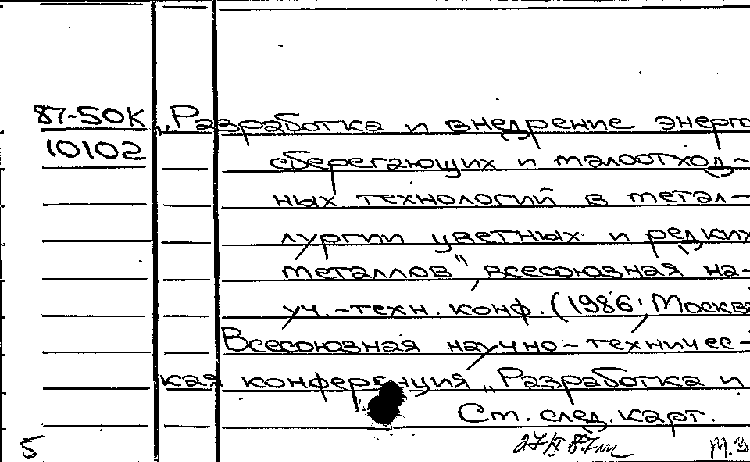 87-50К „Разработка и внедрение энерго
10102 сберегающих и малоотход-
ных технологий в метал-
лургии цветных и редких
металлов", всесоюзная на-
уч.-техн. конф. (1986; Москва
Всесоюзная научно-техничес-
кая конференция „Разработка и
См. след. карт.
5